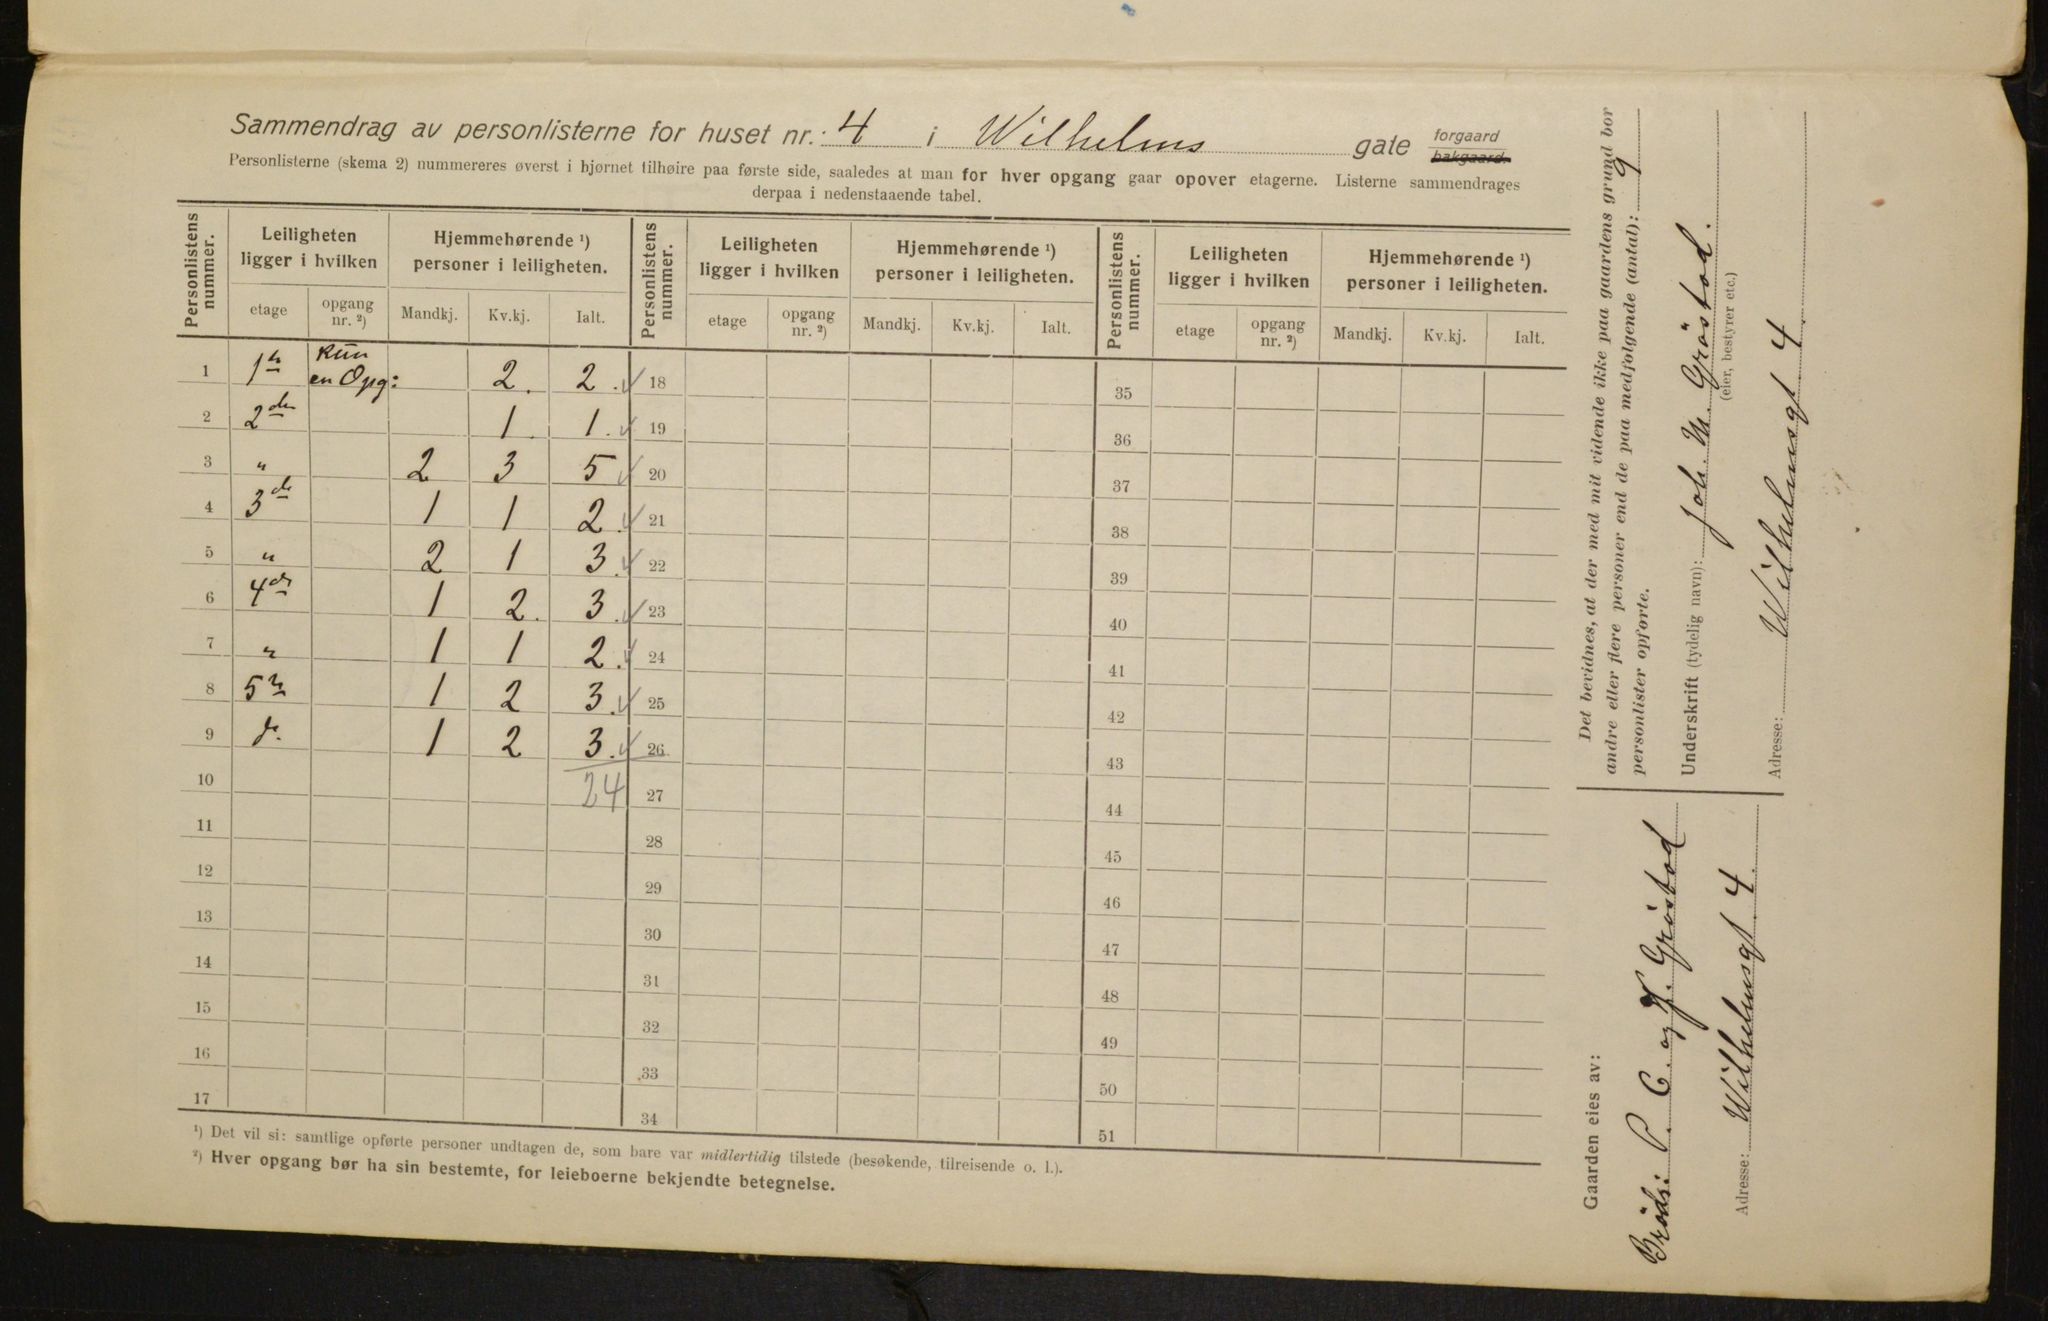 Sammendrag av personlisterne for huset nr.: 4 i Wilhelms gate forgaard bakgaard.
Personlisterne (skema 2) nummereres øverst i hjørnet tilhøire paa første side, saaledes at man for hver opgang gaar opover etagerne. Listerne sammendrages
derpaa i nedenstaaende tabel.
Personlistens nummer. Leiligheten ligger i hvilken Hjemmehørende ¹) personer i leiligheten. Personlistens nummer. Leiligheten ligger i hvilken Hjemmehørende ¹) personer i leiligheten. Personlistens nummer. Leiligheten ligger i hvilken Hjemmehørende ¹) personer i leiligheten.
etage opgang nr. ²) Mandkj. Kv.kj. Ialt. etage opgang nr. ²) Mandkj. Kv.kj. Ialt. etage opgang nr. ²) Mandkj. Kv.kj. Ialt.
1 1ste kun en Opg: 2. 2. 18 35
2 2den 1. 1. 19 36
3 „ 2 3 5 20 37
4 3de 1 1 2. 21 38
5 „ 2 1 3. 22 39
6 4de 1 2. 3. 23 40
7 „ 1 1 2. 24 41
8 5te 1 2 3. 25 42
9 do. 1 2 3. 26 43
10 24 27 44
11 28 45
12 29 46
13 30 47
14 31 48
15 32 49
16 33 50
17 34 51
¹) Det vil si: samtlige opførte personer undtagen de, som bare var midlertidig tilstede (besøkende, tilreisende o. l.).
²) Hver opgang bør ha sin bestemte, for leieboerne bekjendte betegnelse.
Det bevidnes, at der med mit vidende ikke paa gaardens grund bor
andre eller flere personer end de paa medfølgende (antal): 9
personlister opførte.
Underskrift (tydelig navn): Joh. M. Gröstod.
(eier, bestyrer etc.)
Adresse: Wilhelmsgt 4
Gaarden eies av:
Brödr: P. C. og J. Gröstod
Adresse: Wilhelmsgt 4.